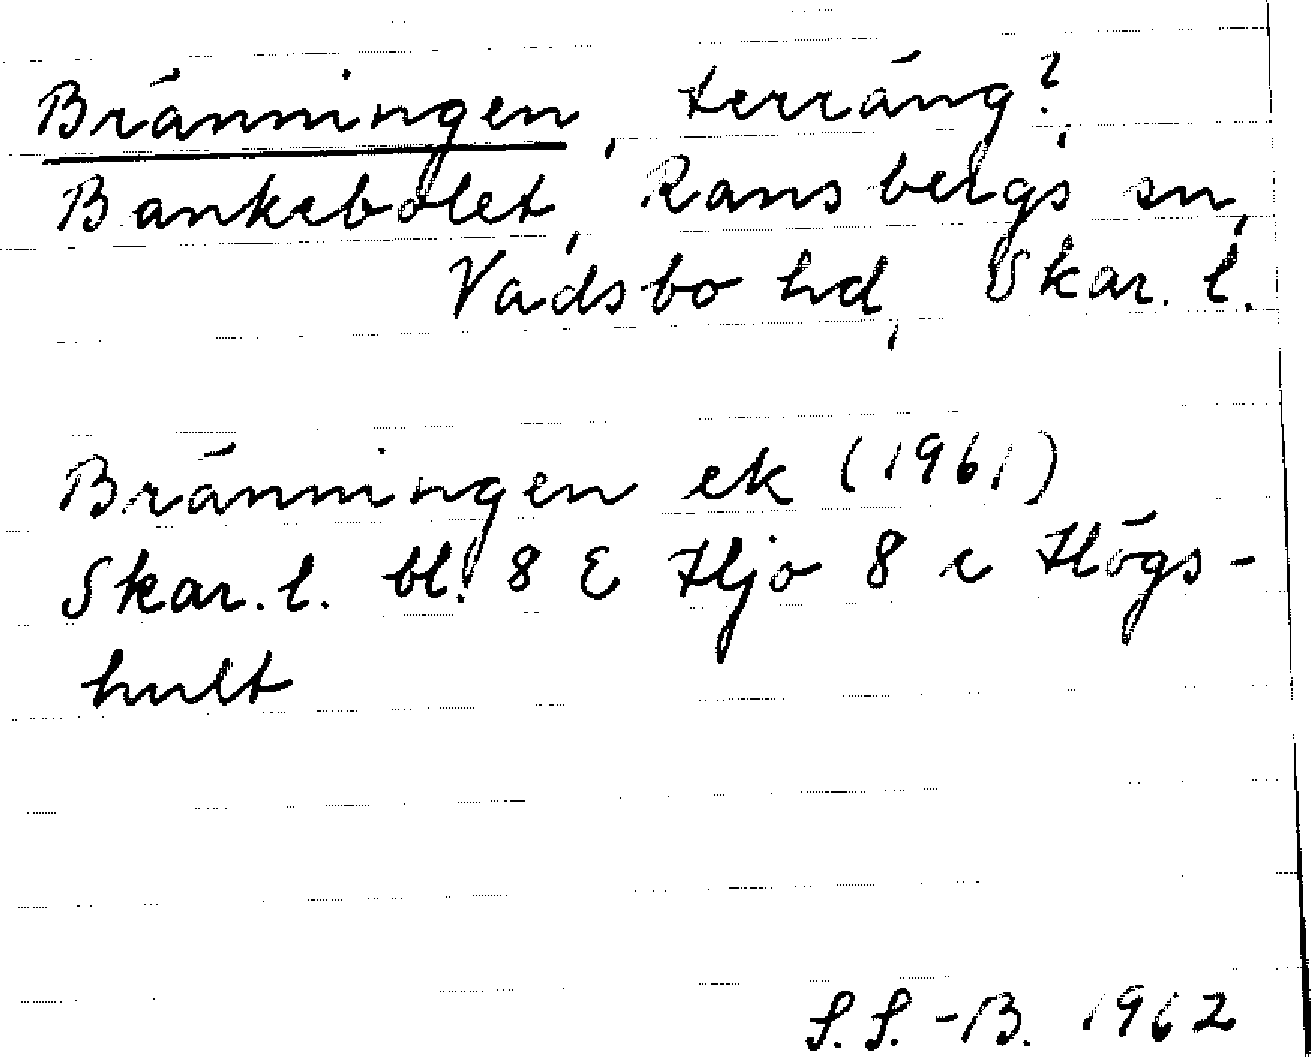 Bränningen, terräng?,
Bankebolet, Ransbergs sn,
Vadsbo hd, Skar. l.
Bränningen ek (1961)
Skar. l. bl. 8 E Hjo 8 e Högs-
hult
S.S.-B. 1962